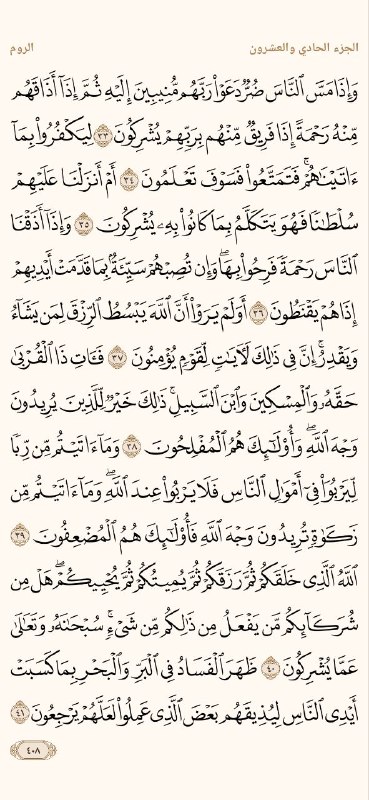 الجزء الحادي والعشرون الروم
وَإِذَا مَسَّ ٱلنَّاسَ ضُرٌّ دَعَوْا۟ رَبَّهُم مُّنِيبِينَ إِلَيْهِ ثُمَّ إِذَآ أَذَاقَهُم
مِّنْهُ رَحْمَةً إِذَا فَرِيقٌ مِّنْهُم بِرَبِّهِمْ يُشْرِكُونَ ٣٣ لِيَكْفُرُوا۟ بِمَآ
ءَاتَيْنَٰهُمْ ۚ فَتَمَتَّعُوا۟ فَسَوْفَ تَعْلَمُونَ ٣٤ أَمْ أَنزَلْنَا عَلَيْهِمْ
سُلْطَٰنًا فَهُوَ يَتَكَلَّمُ بِمَا كَانُوا۟ بِهِۦ يُشْرِكُونَ ٣٥ وَإِذَآ أَذَقْنَا
ٱلنَّاسَ رَحْمَةً فَرِحُوا۟ بِهَا ۖ وَإِن تُصِبْهُمْ سَيِّئَةٌۢ بِمَا قَدَّمَتْ أَيْدِيهِمْ
إِذَا هُمْ يَقْنَطُونَ ٣٦ أَوَلَمْ يَرَوْا۟ أَنَّ ٱللَّهَ يَبْسُطُ ٱلرِّزْقَ لِمَن يَشَآءُ
وَيَقْدِرُ ۚ إِنَّ فِى ذَٰلِكَ لَءَايَٰتٍ لِّقَوْمٍ يُؤْمِنُونَ ٣٧ فَـَٔاتِ ذَا ٱلْقُرْبَىٰ
حَقَّهُۥ وَٱلْمِسْكِينَ وَٱبْنَ ٱلسَّبِيلِ ۚ ذَٰلِكَ خَيْرٌ لِّلَّذِينَ يُرِيدُونَ
وَجْهَ ٱللَّهِ ۖ وَأُو۟لَٰٓئِكَ هُمُ ٱلْمُفْلِحُونَ ٣٨ وَمَآ ءَاتَيْتُم مِّن رِّبًا
لِّيَرْبُوَا۟ فِىٓ أَمْوَٰلِ ٱلنَّاسِ فَلَا يَرْبُوا۟ عِندَ ٱللَّهِ ۖ وَمَآ ءَاتَيْتُم مِّن
زَكَوٰةٍ تُرِيدُونَ وَجْهَ ٱللَّهِ فَأُو۟لَٰٓئِكَ هُمُ ٱلْمُضْعِفُونَ ٣٩
ٱللَّهُ ٱلَّذِى خَلَقَكُمْ ثُمَّ رَزَقَكُمْ ثُمَّ يُمِيتُكُمْ ثُمَّ يُحْيِيكُمْ ۖ هَلْ مِن
شُرَكَآئِكُم مَّن يَفْعَلُ مِن ذَٰلِكُم مِّن شَىْءٍ ۚ سُبْحَٰنَهُۥ وَتَعَٰلَىٰ
عَمَّا يُشْرِكُونَ ٤٠ ظَهَرَ ٱلْفَسَادُ فِى ٱلْبَرِّ وَٱلْبَحْرِ بِمَا كَسَبَتْ
أَيْدِى ٱلنَّاسِ لِيُذِيقَهُم بَعْضَ ٱلَّذِى عَمِلُوا۟ لَعَلَّهُمْ يَرْجِعُونَ ٤١
٤٠٨